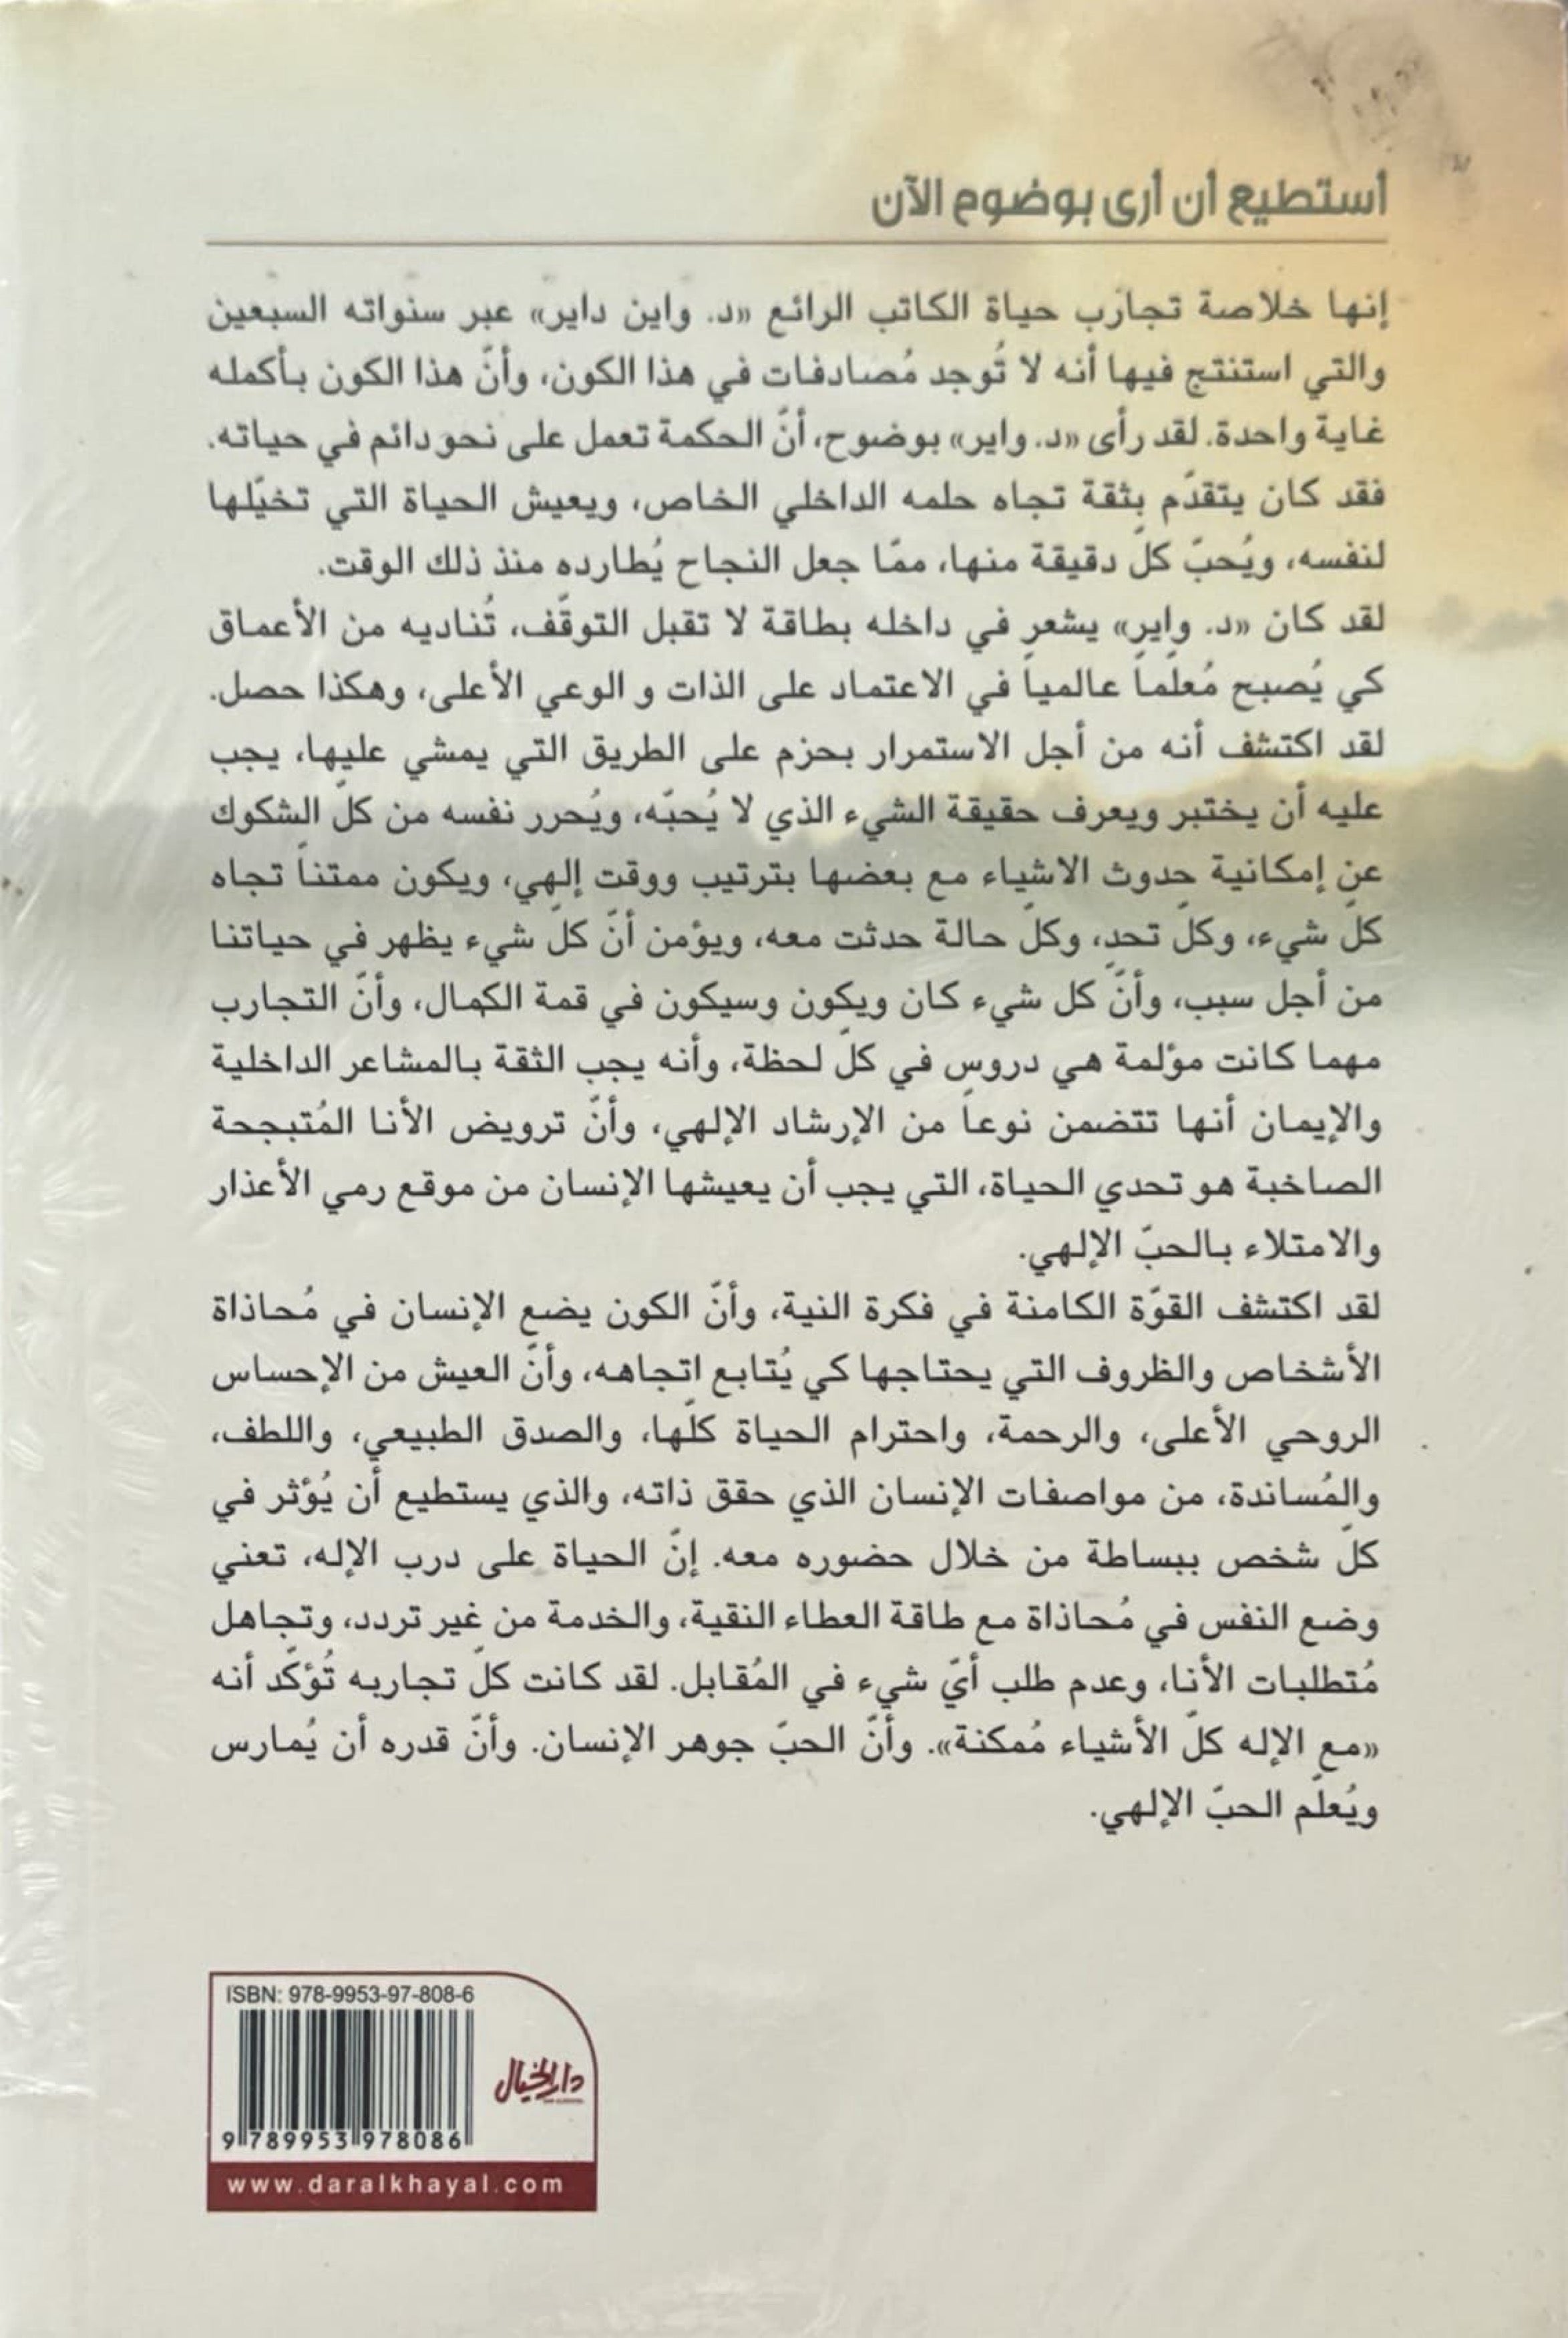 أستطيع أن أرى بوضوح الآن
إنها خلاصة تجارَب حياة الكاتب الرائع «د. واين داير» عبر سنواته السبعين
والتي استنتج فيها أنه لا تُوجد مُصادفات في هذا الكون، وأنّ هذا الكون بأكمله
غاية واحدة. لقد رأى «د. واير» بوضوح، أنّ الحكمة تعمل على نحو دائم في حياته.
فقد كان يتقدّم بثقة تجاه حلمه الداخلي الخاص، ويعيش الحياة التي تخيّلها
لنفسه، ويُحبّ كلّ دقيقة منها، ممّا جعل النجاح يُطارده منذ ذلك الوقت.
لقد كان «د. واير» يشعر في داخله بطاقة لا تقبل التوقّف، تُناديه من الأعماق
كي يُصبح مُعلّماً عالمياً في الاعتماد على الذات و الوعي الأعلى، وهكذا حصل.
لقد اكتشف أنه من أجل الاستمرار بحزم على الطريق التي يمشي عليها، يجب
عليه أن يختبر ويعرف حقيقة الشيء الذي لا يُحبّه، ويُحرر نفسه من كلّ الشكوك
عن إمكانية حدوث الاشياء مع بعضها بترتيب ووقت إلهي، ويكون ممتناً تجاه
كلّ شيء، وكلّ تحدٍ، وكلّ حالة حدثت معه، ويؤمن أنّ كلّ شيء يظهر في حياتنا
من أجل سبب، وأنّ كل شيء كان ويكون وسيكون في قمة الكمال، وأنّ التجارب
مهما كانت مؤلمة هي دروس في كلّ لحظة، وأنه يجب الثقة بالمشاعر الداخلية
والإيمان أنها تتضمن نوعاً من الإرشاد الإلهي، وأنّ ترويض الأنا المُتبجحة
الصاخبة هو تحدي الحياة، التي يجب أن يعيشها الإنسان من موقع رمي الأعذار
والامتلاء بالحبّ الإلهي.
لقد اكتشف القوّة الكامنة في فكرة النية، وأنّ الكون يضع الإنسان في مُحاذاة
الأشخاص والظروف التي يحتاجها كي يُتابع اتجاهه، وأنّ العيش من الإحساس
الروحي الأعلى، والرحمة، واحترام الحياة كلّها، والصدق الطبيعي، واللطف،
والمُساندة، من مواصفات الإنسان الذي حقق ذاته، والذي يستطيع أن يُؤثر في
كلّ شخص ببساطة من خلال حضوره معه. إنّ الحياة على درب الإله، تعني
وضع النفس في مُحاذاة مع طاقة العطاء النقية، والخدمة من غير تردد، وتجاهل
مُتطلبات الأنا، وعدم طلب أيّ شيء في المُقابل. لقد كانت كلّ تجاربه تُؤكّد أنه
«مع الإله كلّ الأشياء مُمكنة». وأنّ الحبّ جوهر الإنسان. وأنّ قدره أن يُمارس
ويُعلّم الحبّ الإلهي.
ISBN: 978-9953-97-808-6
دار الخيال
9 789953 978086
www.daralkhayal.com